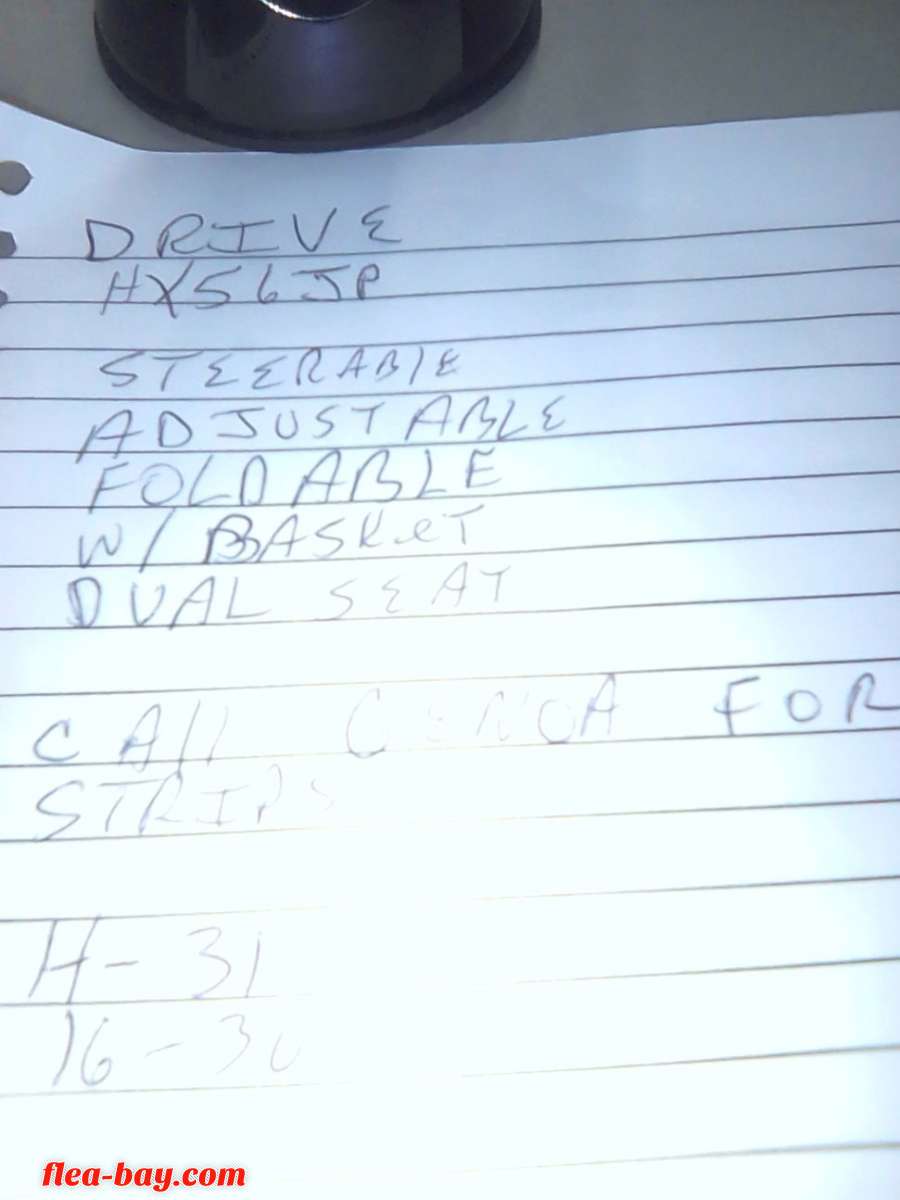 DRIVE
HX56JP
STEERABlE
ADJUSTABLE
FOLDABLE
W/ BASKeT
DUAL SEAT
CAll GENOA FOR
STRIPS
H-31
16-30
flea-bay.com